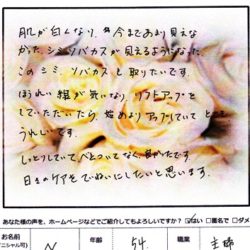 肌が白くなり、今まであまり見えな
かった、シミ・ソバカスが見えるようになった。
このシミ・ソバカスも取りたいです。
ほうれい線が気になり、リフトアップを
していただいたら、始めよりアップしていて
うれしいです。
しっとりしていてべとついてなく
日々のケアをていねいにしたいと思います。
あなた様の声を、ホームページなどでご紹介してもよろしいですか？ ☑はい □匿名で □ダメ
お名前
イニシャル可)
N
年齢
54
職業
主婦